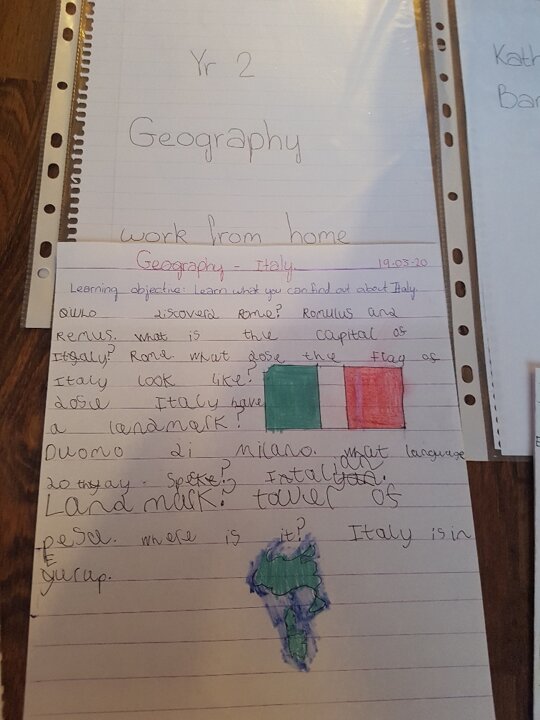 Yr 2
Geography
work from home
Kath
Bar
Geography - Italy 19-03-20
Learning objective: Learn what you can find out about Italy
discoverd Rome? Romulus and
Remus. what is the capital of
Italy? Rome what dose the flag of
Italy look like?
dose Italy have
a landmark?
Duomo di milano. what language
do thay
Land mark? tower of
pesa. where is it? Italy is in